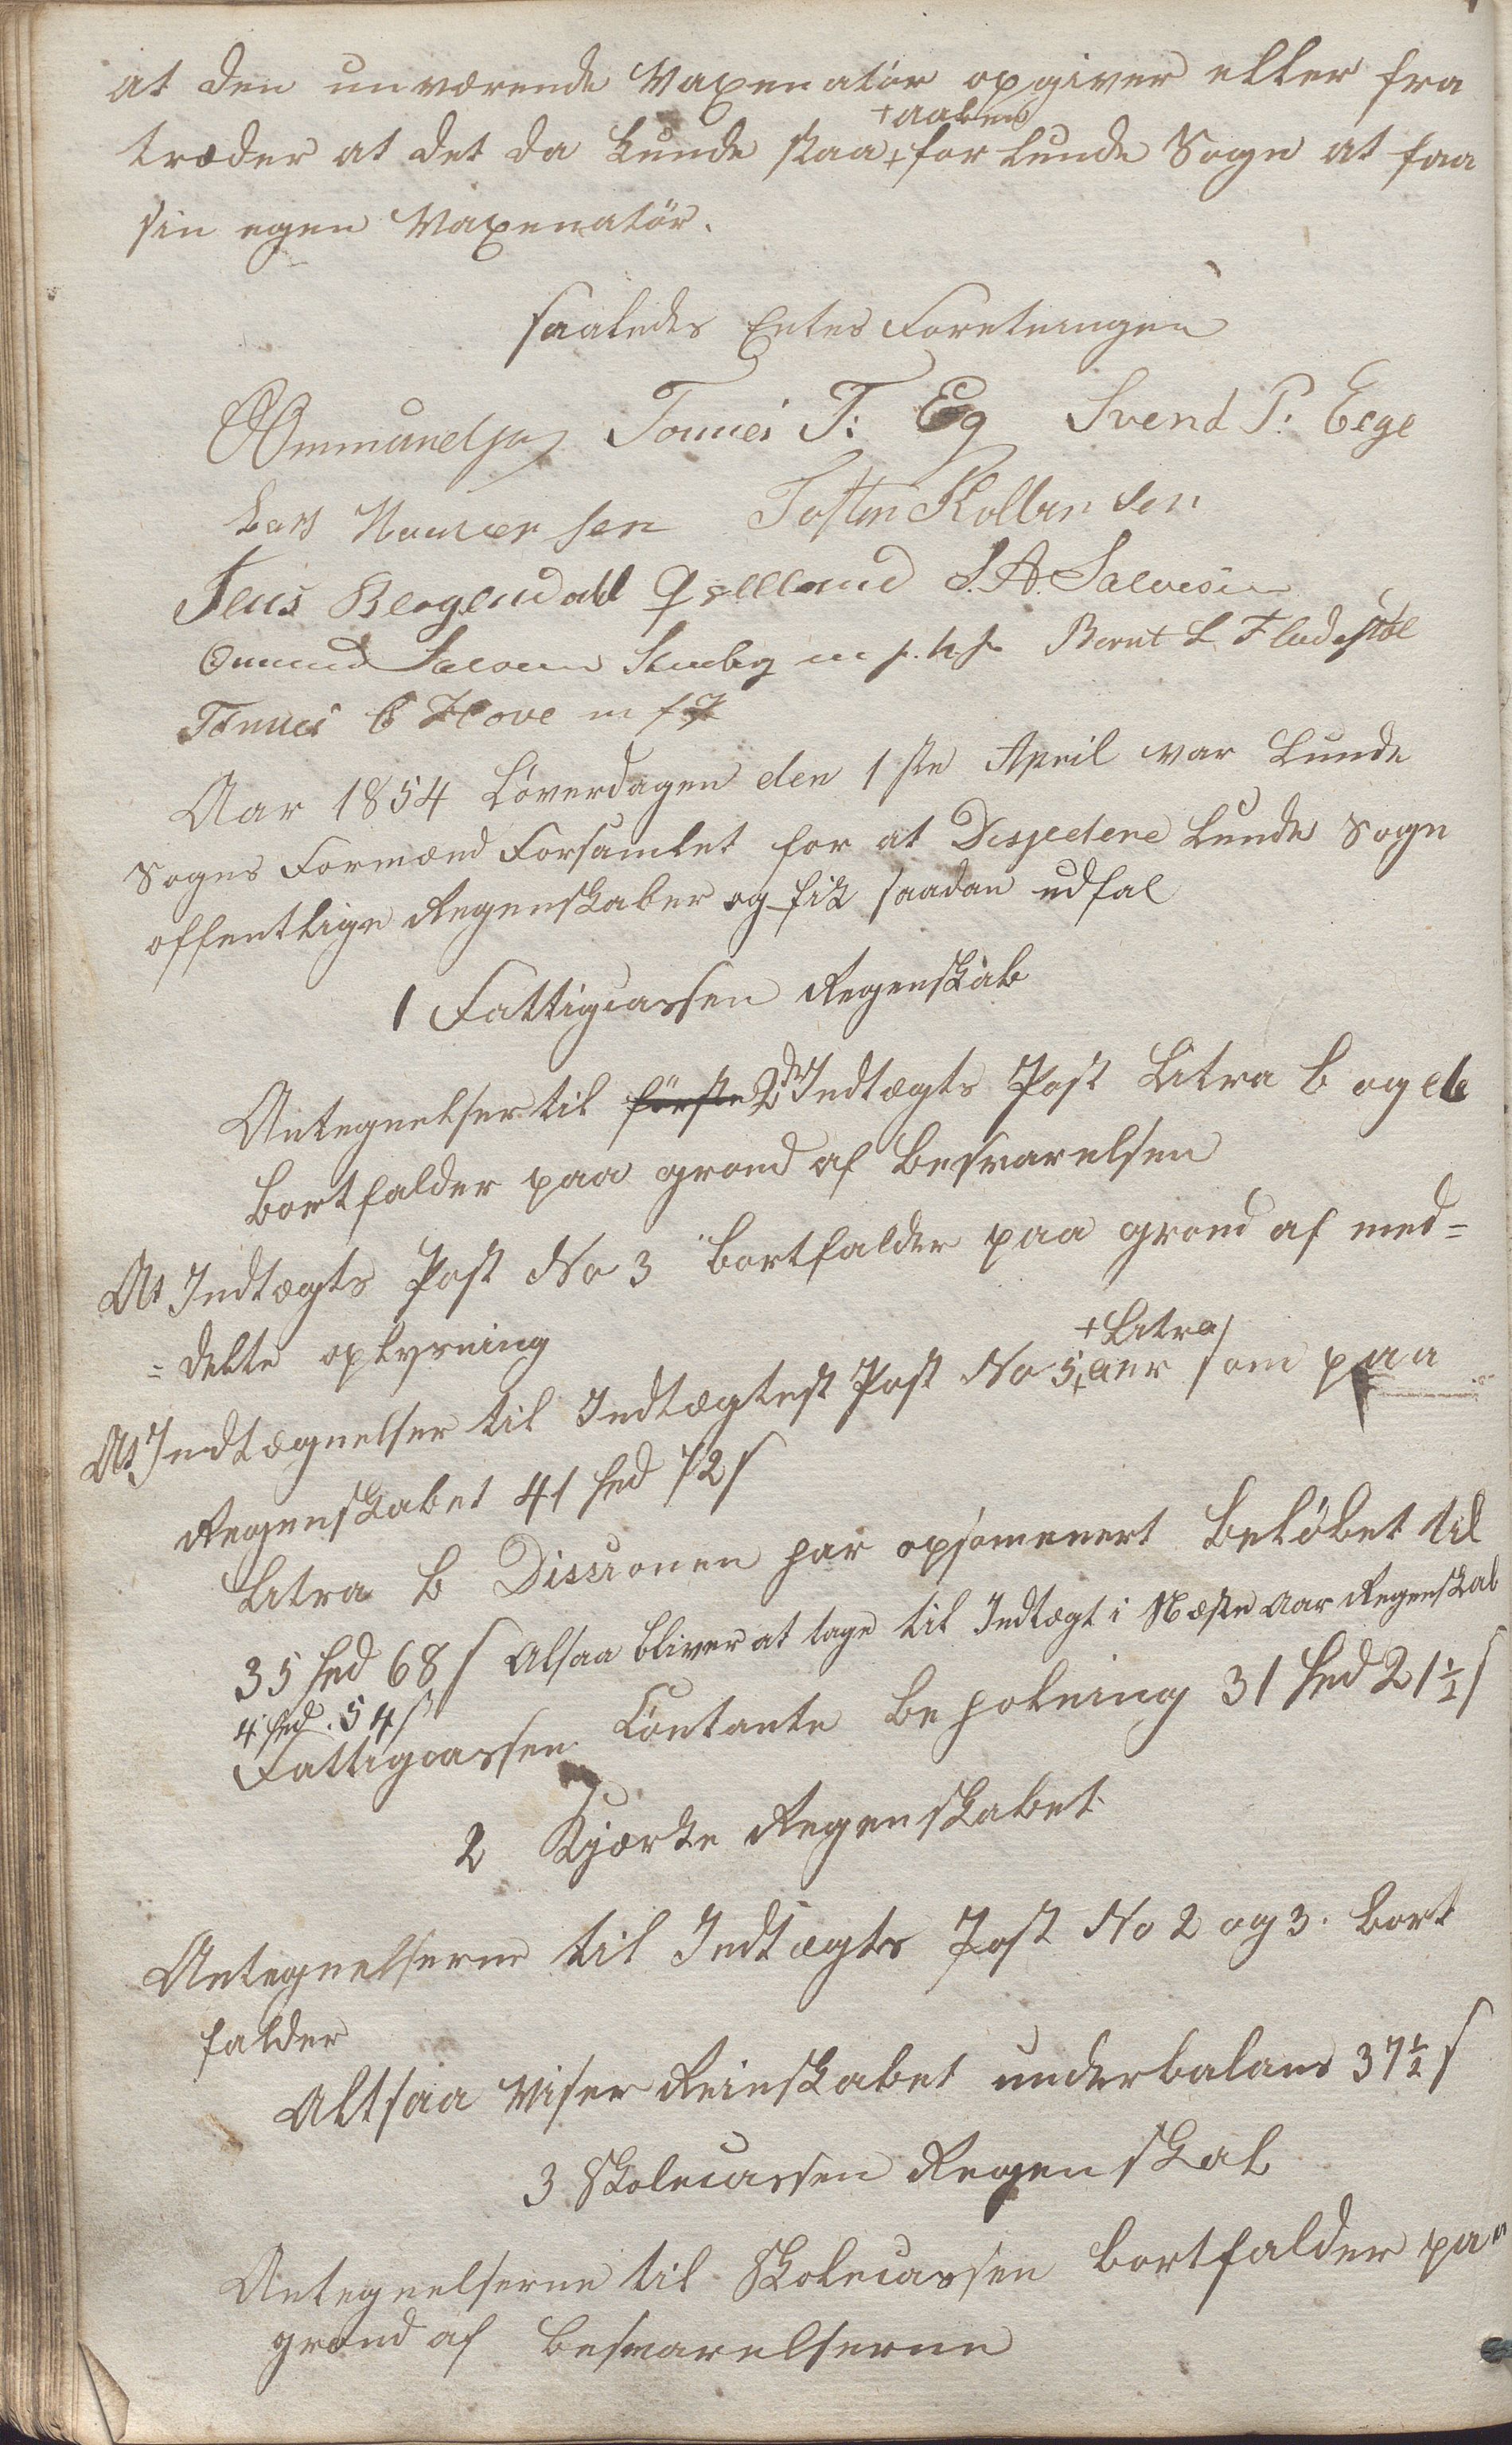 at den unværende Vaxenatør opgiver eller fra
træder at det da kunde staa + for Lunde Sogn at faa
+ aaben
sin egen Vaxenatør.
saaledes Entes Foretningen
Ommundsen Tonnes T: Eg Svend P. Eege
Lars Hansen Tosten Kolbensen
Jens Bergendahl Qvelland S. A. Salvesen
Omund Salvesen Stuebg m f. h p. Bernt L Fladstøl
Tønnes B Hove m f P
Aar 1854 Løverdagen den 1ste April var Lunde
Sogns Formænd Forsamlet for at Desjedere Lunde Sogn
offentlige Regenskaber og fik saadan udfal
1 Fattigcassen Regenskab
Antegnelser til første 2den Indtægts Post Litra b og d
bortfalder paa grond af besvarelsen
At Indtægts Post No 3 bortfalder paa grond af med=
=delte oplysning
+ Litra
At Indtægnelser til Indtægtest Post No 5 + a er som paa
Regenskabet 41 spd 72 s
Litra b Dissionen har opsomenert beløbet til
35 spd 68 s Alsaa bliver at tage til Indtægt i Næste Aar Regenskab
4 spd. 54 s
Fattigcassen Contante beholning 31 spd 21½ s
2 Kjærke Regenskabet
Antegnelserne til Indtægts Post No 2 og 3. bort
falder
Altsaa Viser Reinskabet underbalans 37½ s
3 Skolecassen Regenskab
Antegnelserne til Skolecassen bortfalder paa
grond af besvarelserne